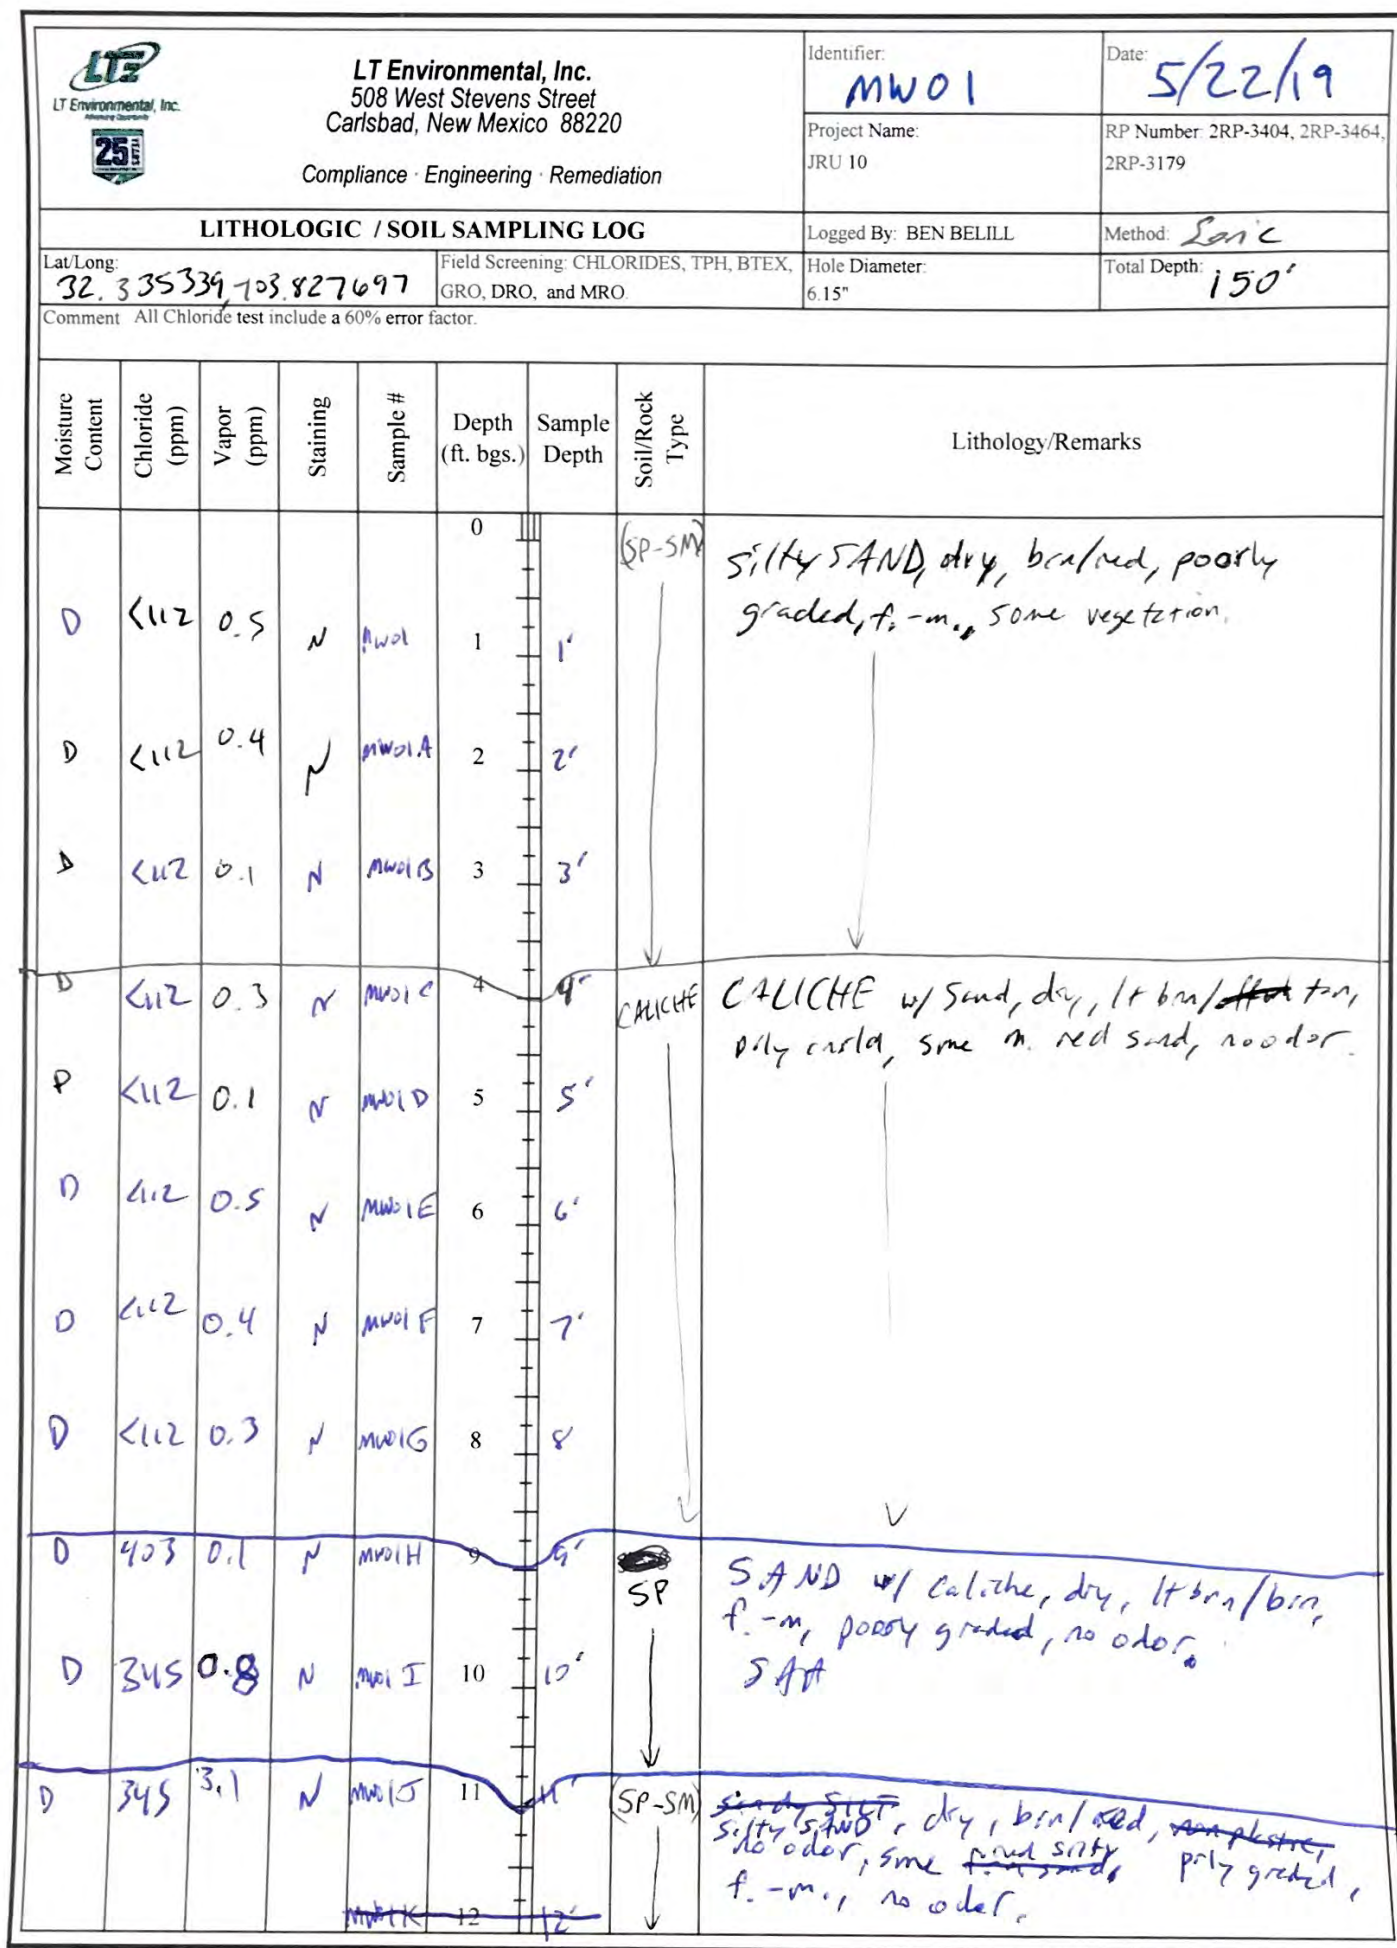 LTE
LT Environmental, Inc.
Advancing Opportunity
25 YEARS
LT Environmental, Inc.
508 West Stevens Street
Carlsbad, New Mexico 88220
Compliance · Engineering · Remediation
Identifier:
MW01
Date:
5/22/19
Project Name:
JRU 10
RP Number: 2RP-3404, 2RP-3464,
2RP-3179
LITHOLOGIC / SOIL SAMPLING LOG
Logged By: BEN BELILL
Method: Sonic
Lat/Long:
32.335339,-103.827697
Field Screening: CHLORIDES, TPH, BTEX,
GRO, DRO, and MRO.
Hole Diameter:
6.15"
Total Depth:
150'
Comment All Chloride test include a 60% error factor.
Moisture Content
Chloride (ppm)
Vapor (ppm)
Staining
Sample #
Depth (ft. bgs.)
Sample Depth
Soil/Rock Type
Lithology/Remarks
0 (SP-SM) silty SAND, dry, brn/red, poorly
graded, f.-m., some vegetation.
D <112 0.5 N MW01 1 1'
D <112 0.4 N MW01A 2 2'
D <112 0.1 N MW01B 3 3'
D <112 0.3 N MW01C 4 4' CALICHE CALICHE w/ Sand, dry, lt brn/ tan,
some m. red sand, no odor.
D <112 0.1 N MW01D 5 5'
D <112 0.5 N MW01E 6 6'
D <112 0.4 N MW01F 7 7'
D <112 0.3 N MW01G 8 8'
D 403 0.1 N MW01H 9 9' SP SAND w/ Caliche, dry, lt brn/brn,
f.-m, poorly graded, no odor.
D 345 0.8 N MW01I 10 10' SAA
D 345 3.1 N MW01J 11 11' (SP-SM) sandy SILT
silty SAND, dry, brn/red, non plastic,
no odor, some prly graded,
f.-m., no odor.
MW01K 12 12'